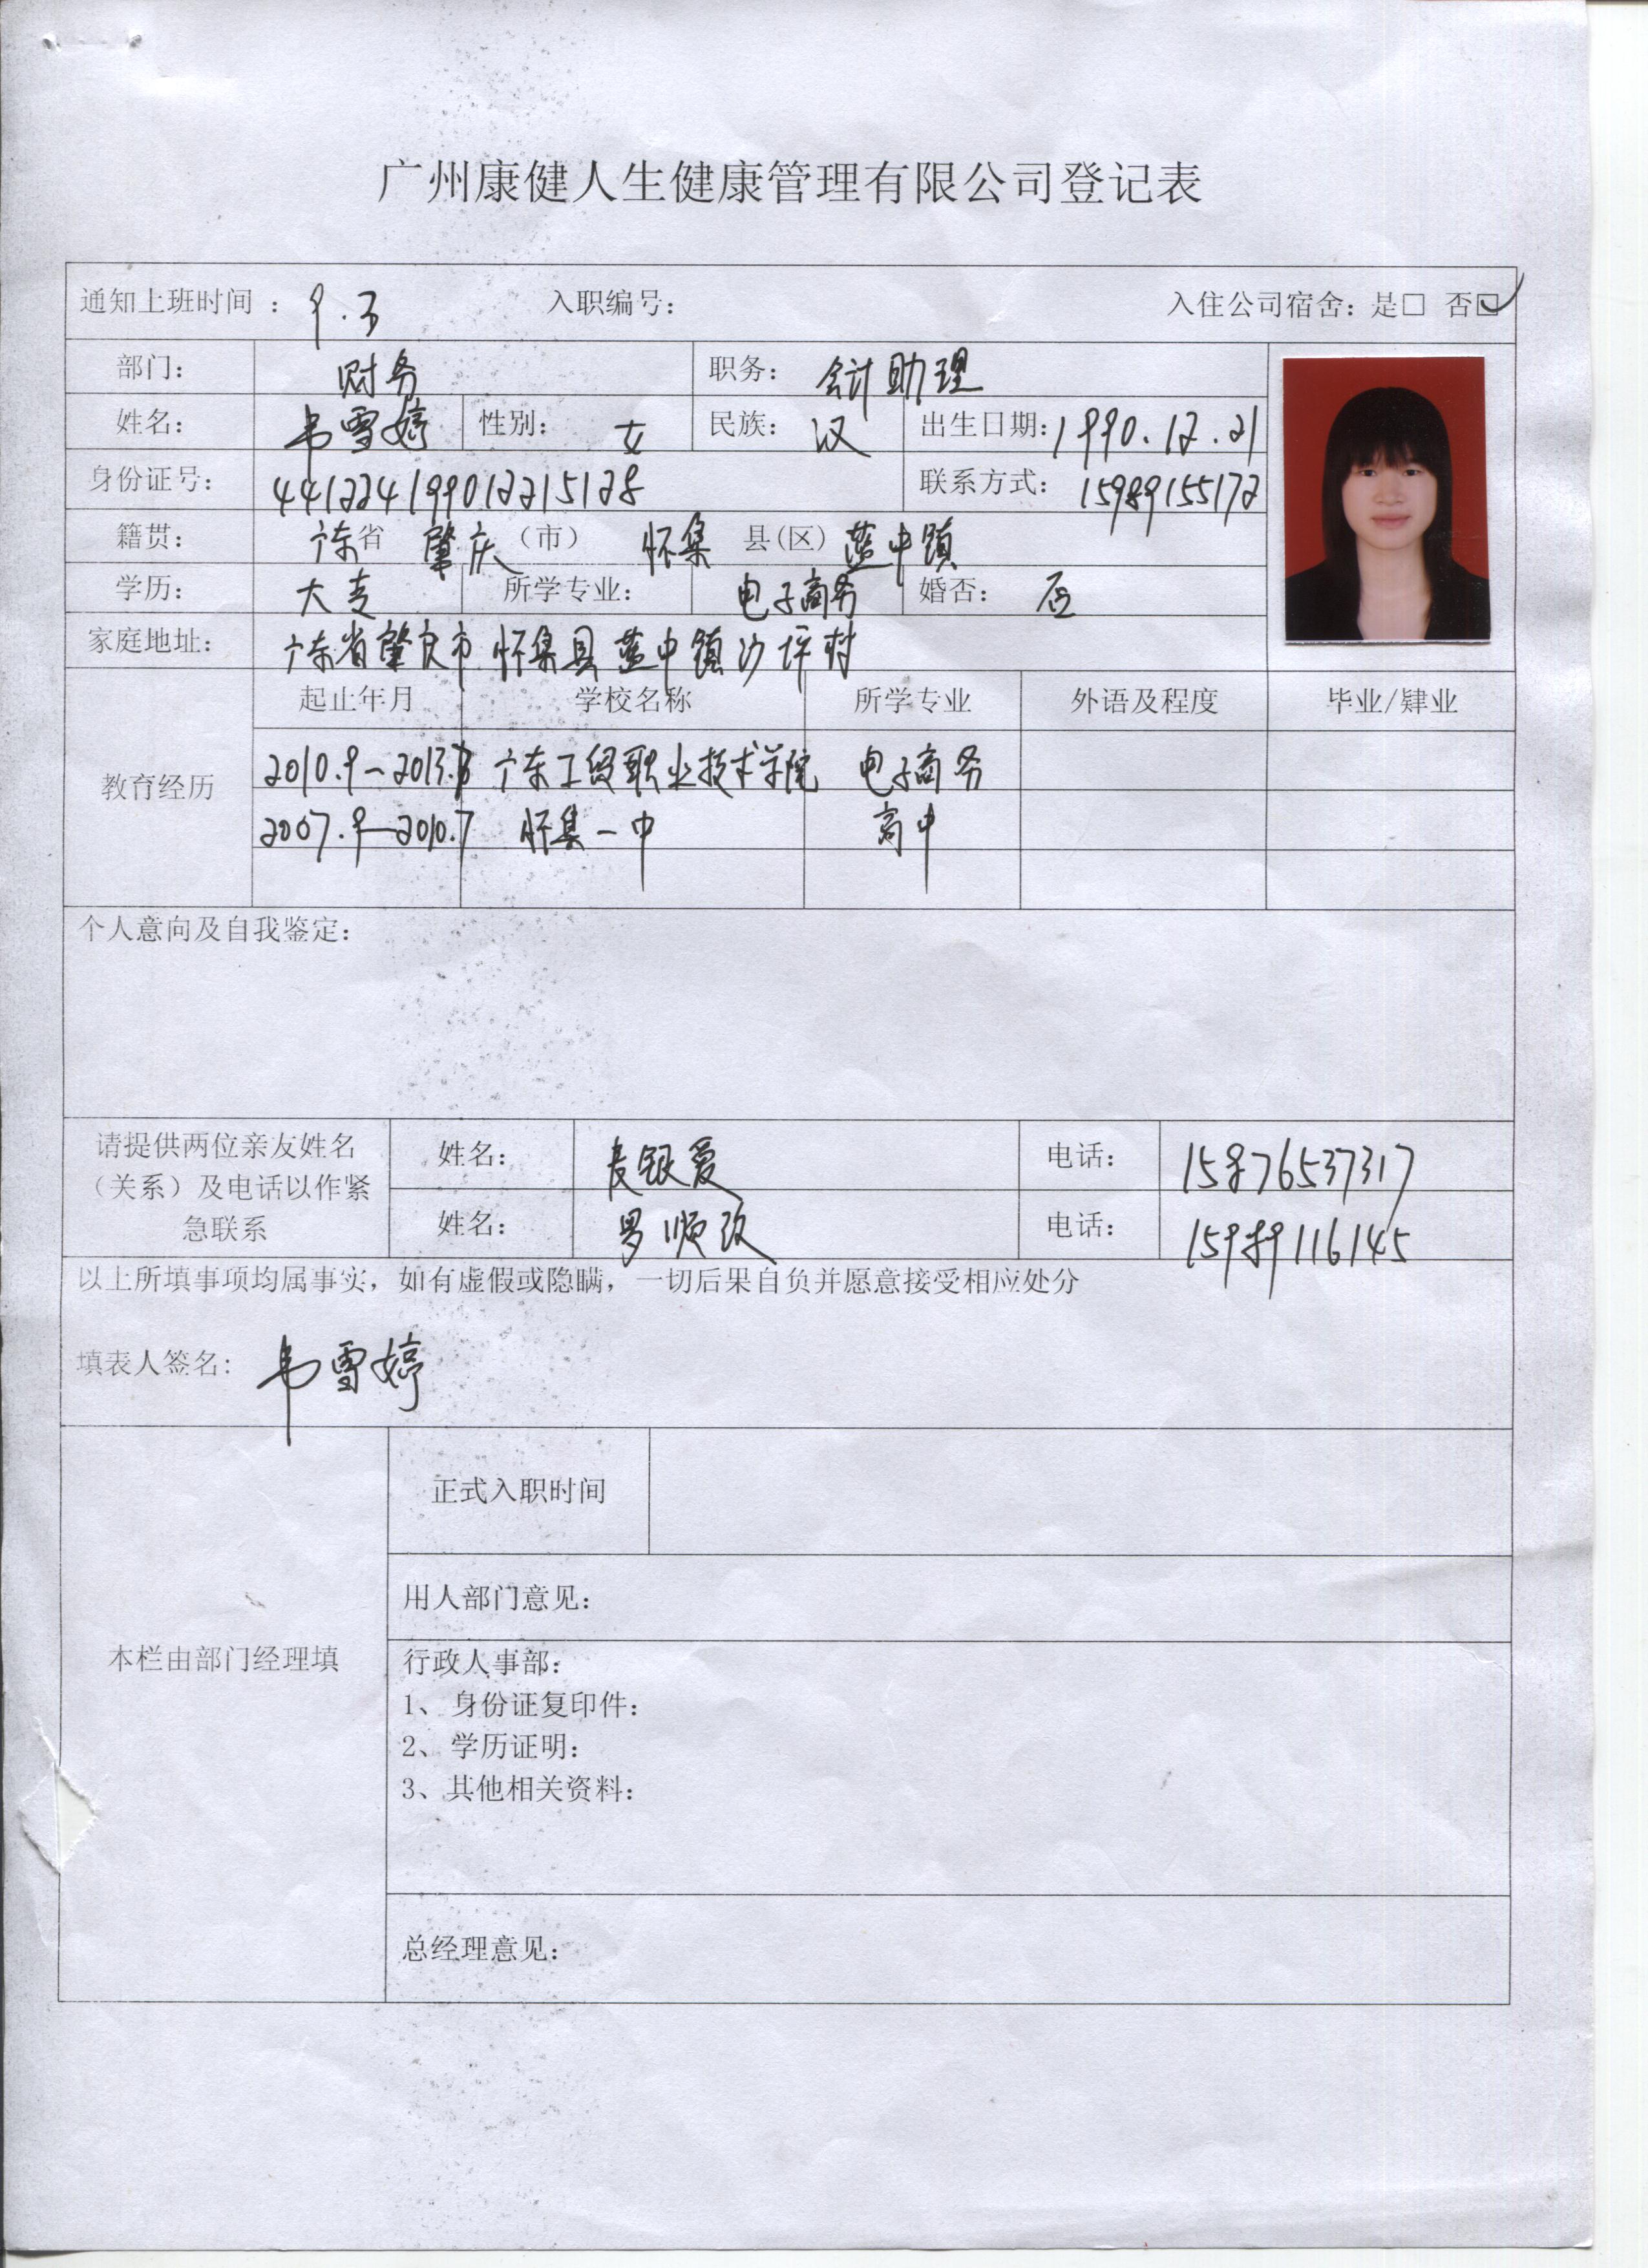 广州康健人生健康管理有限公司登记表
通知上班时间 : 9.3 入职编号: 入住公司宿舍: 是□ 否☑
部门: 财务 职务: 会计助理
姓名: 韦雪婷 性别: 女 民族: 汉 出生日期: 1990.12.21
身份证号: 441224199012215128 联系方式: 15989155172
籍贯: 广东省 肇庆(市) 怀集 县(区) 蓝中镇
学历: 大专 所学专业: 电子商务 婚否: 否
家庭地址: 广东省肇庆市怀集县蓝中镇沙坪村
教育经历 起止年月 学校名称 所学专业 外语及程度 毕业/肄业
2010.9-2013. 广东工贸职业技术学院 电子商务
2007.9-2010.7 怀集一中 高中
个人意向及自我鉴定:
请提供两位亲友姓名
(关系)及电话以作紧
急联系
姓名: 银爱 电话: 15876537317
姓名: 罗顺改 电话: 15989116145
以上所填事项均属事实, 如有虚假或隐瞒, 一切后果自负并愿意接受相应处分
填表人签名: 韦雪婷
本栏由部门经理填
正式入职时间
用人部门意见:
行政人事部:
1、身份证复印件:
2、学历证明:
3、其他相关资料:
总经理意见: